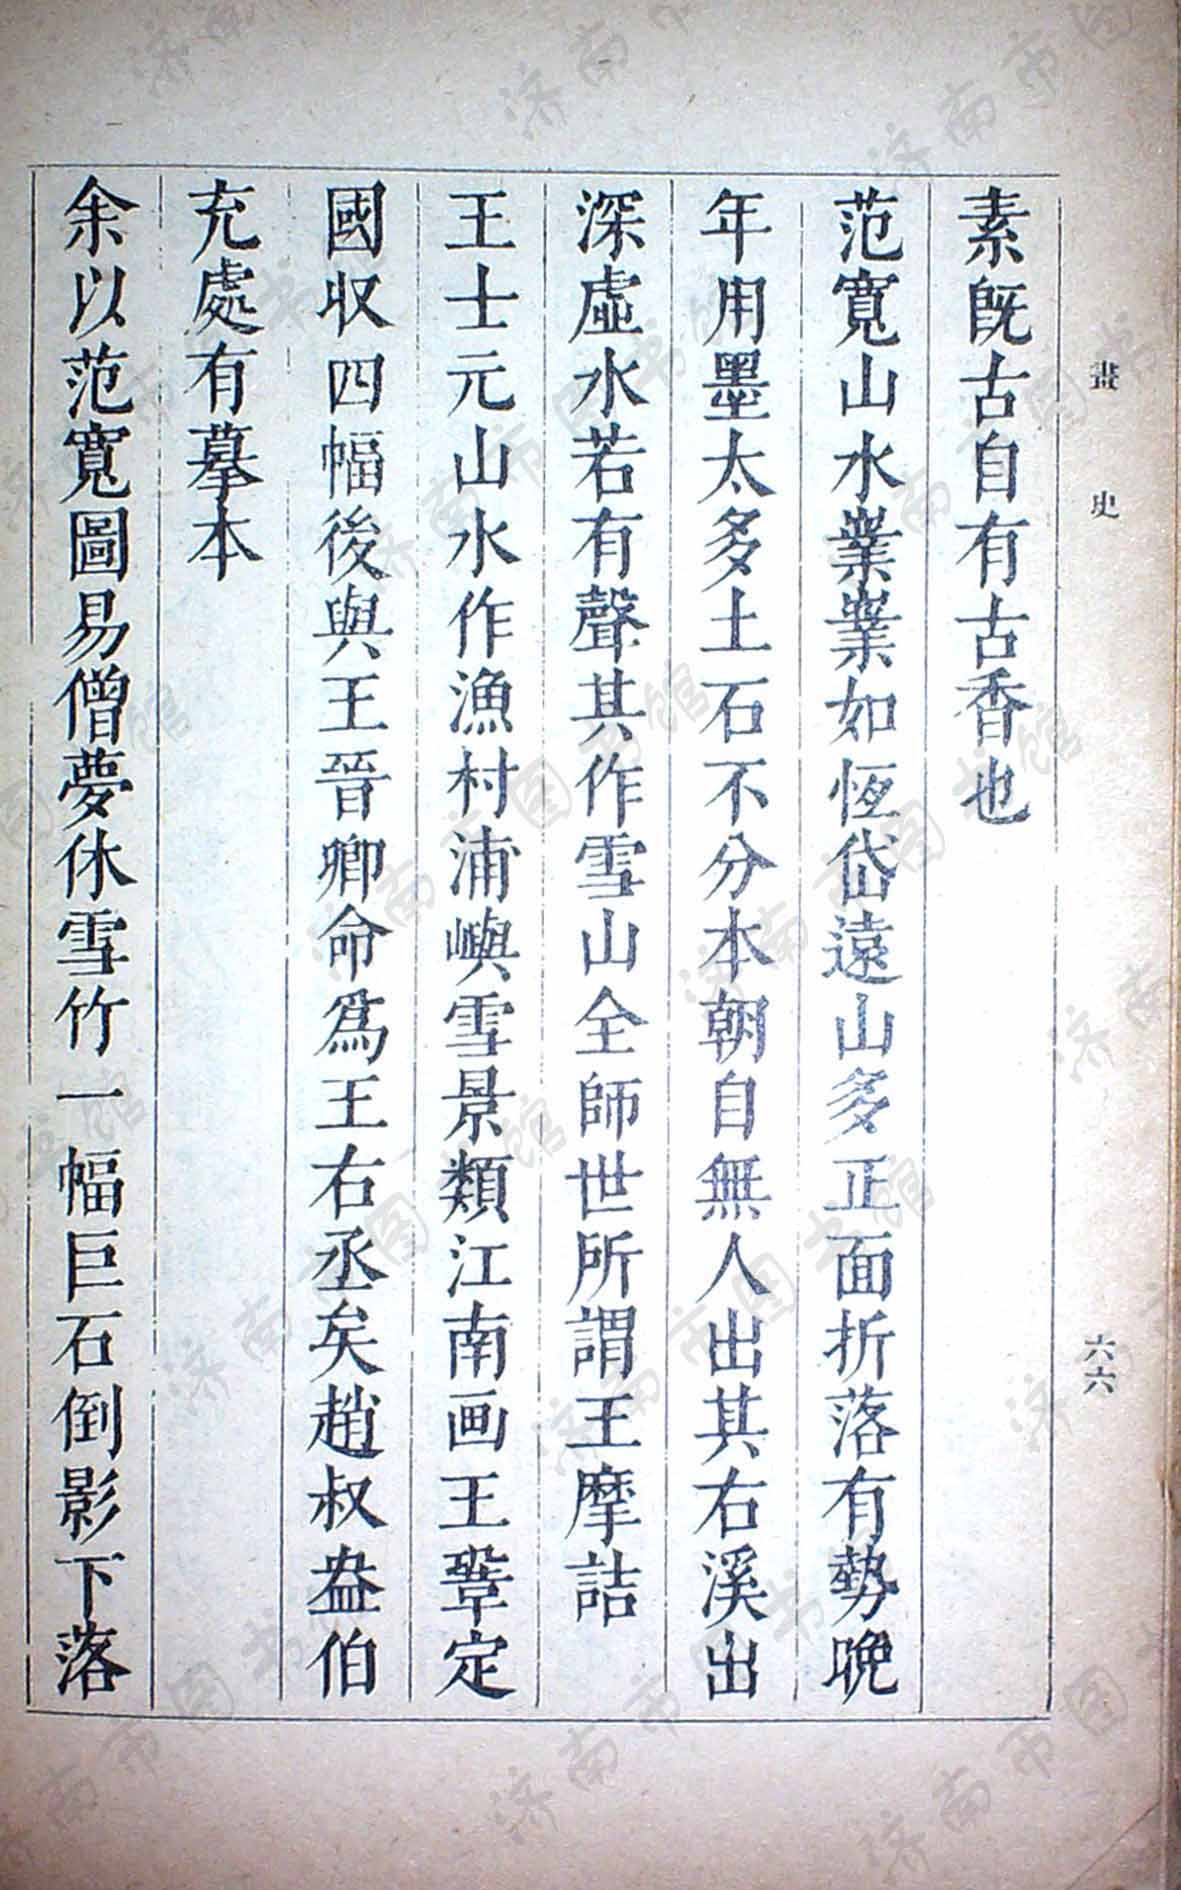 畫史
六六
素旣古自有古香也
范寬山水業業如恆岱遠山多正面折落有勢晚
年用墨太多土石不分本朝自無人出其右溪出
深虛水若有聲其作雪山全師世所謂王摩詰
王士元山水作漁村浦嶼雪景類江南画王鞏定
國収四幅後與王晉卿命爲王右丞矣趙叔盎伯
充處有摹本
余以范寬圖易僧夢休雪竹一幅巨石倒影下落
济南市图书馆